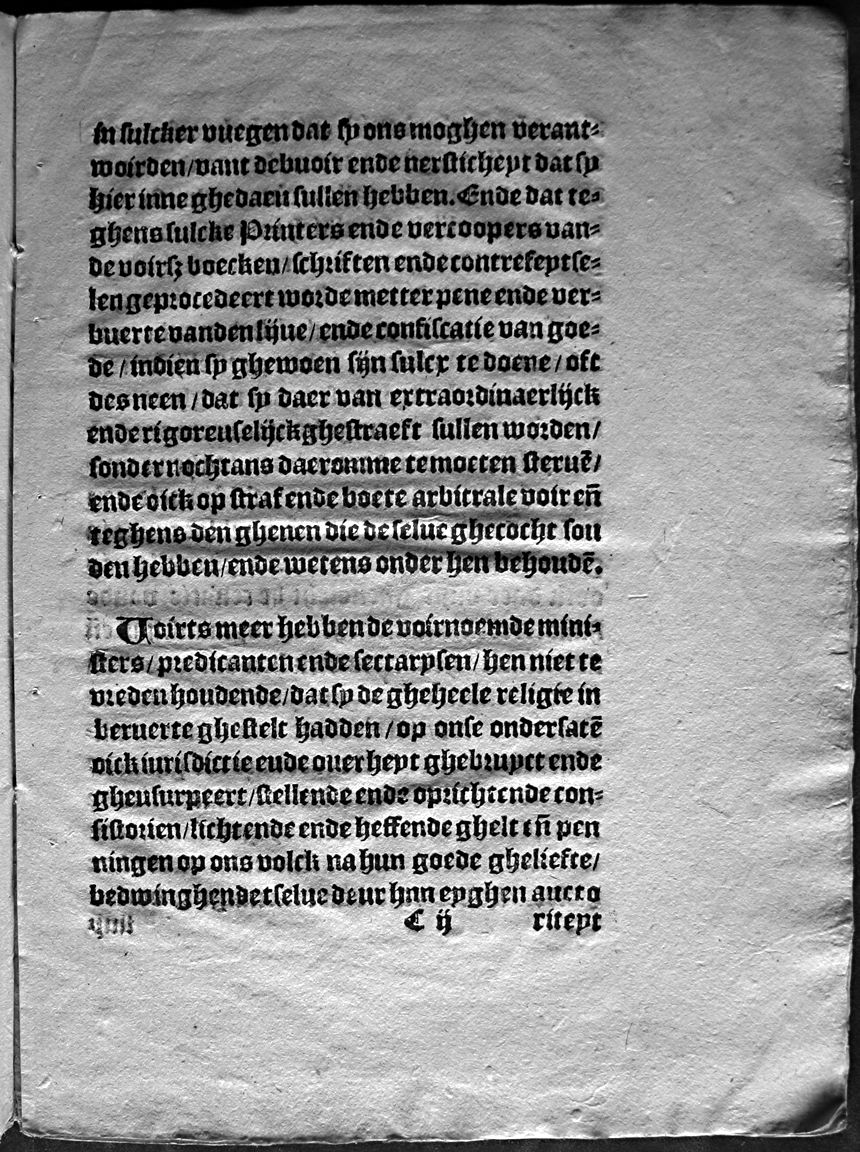 in sulcker vuegen dat sy ons moghen verant⸗
woirden/vant debuoir ende nersticheyt dat sy
hier inne ghedaen sullen hebben. Ende dat te⸗
ghens sulcke Printers ende vercoopers van⸗
de voirsz boecken/schriften ende contrefeytse⸗
len geprocedeert worde metter pene ende ver⸗
buerte vanden lijue/ende confiscatie van goe⸗
de/indien sy ghewoen sijn sulcx te doene/oft
des neen/dat sy daer van extraordinaerlijck
ende rigoreuselijck ghestraeft sullen worden/
sonder nochtans daeromme te moeten steruẽ/
ende oick op straf ende boete arbitrale voir eñ
teghens den ghenen die de selue ghecocht sou
den hebben/ende wetens onder hen behoudẽ.
Voirts meer hebben de voirnoemde mini⸗
sters/predicanten ende sectarysen/hen niet te
vreden houdende/dat sy de gheheele religie in
beruerte ghestelt hadden/op onse ondersatẽ
oick iurisdictie ende ouerheyt ghebruyct ende
gheusurpeert/stellende ende oprichtende con⸗
sistorien/lichtende ende heffende ghelt eñ pen
ningen op ons volck na hun goede gheliefte/
bedwinghende tselue deur hnn eyghen aucto
C ij riteyt